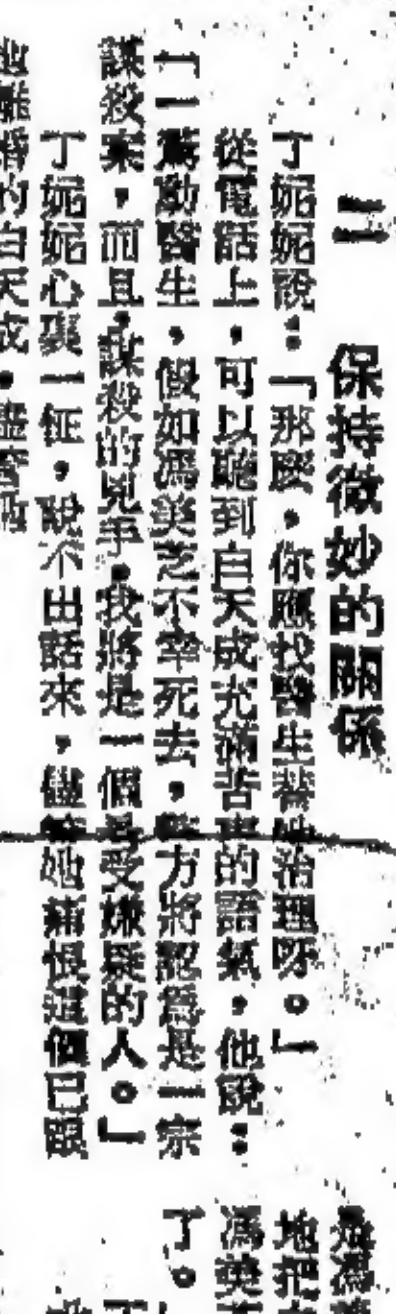 二 保持微妙的關係
丁妮妮說：「那麼，你應找醫生替她治理呀。」
從電話上，可以聽到白天成充滿苦衷的語氣，他說：
「一驚動醫生，假如馮美芝不幸死去，警方將認爲是一宗
謀殺案，而且，謀殺的兇手，我將是一個最受嫌疑的人。」
丁妮妮心裏一怔，說不出話來，儘管她痛恨這個已跟
她離婚的白天成，儘管她
地把
馮美
了。